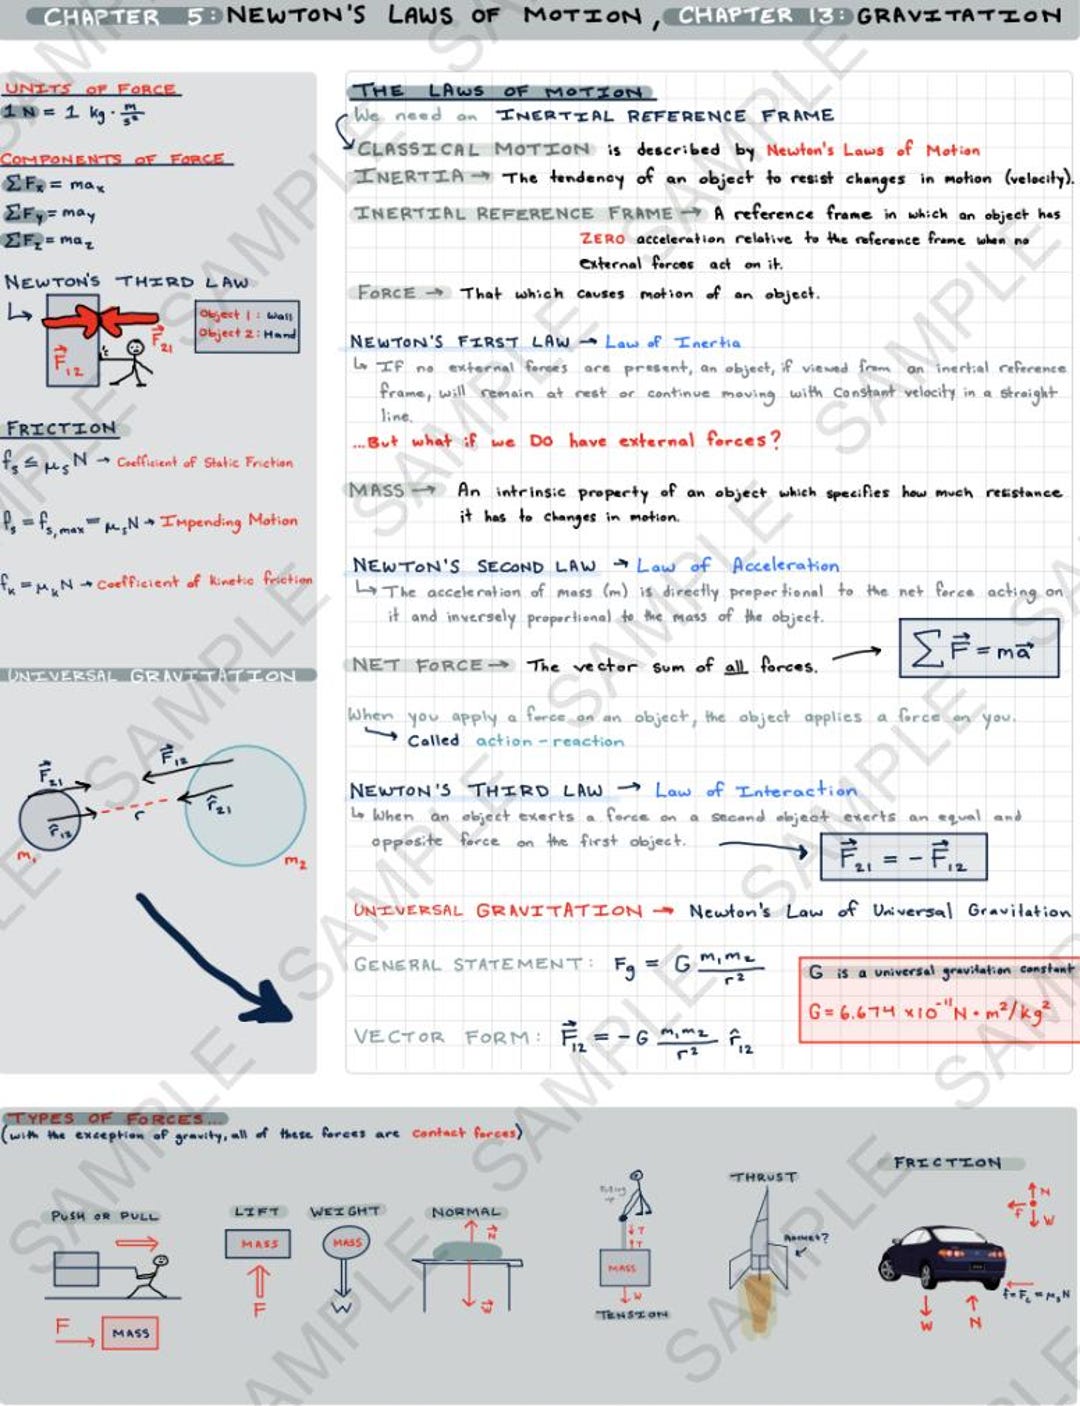 CHAPTER 5: NEWTON'S LAWS OF MOTION, CHAPTER 13: GRAVITATION
UNITS OF FORCE
1 N = 1 kg · m/s²
COMPONENTS OF FORCE
ΣFx = max
ΣFy = may
ΣFz = maz
NEWTON'S THIRD LAW
Object 1: Wall
Object 2: Hand
F⃗12
F⃗21
FRICTION
fs ≤ μsN → Coefficient of Static Friction
fs = fs,max = μsN → Impending Motion
fk = μkN → Coefficient of kinetic friction
UNIVERSAL GRAVITATION
F⃗21
F⃗12
r̂12
r
r̂21
m1
m2
THE LAWS OF MOTION
We need an INERTIAL REFERENCE FRAME
CLASSICAL MOTION is described by Newton's Laws of Motion
INERTIA → The tendency of an object to resist changes in motion (velocity).
INERTIAL REFERENCE FRAME → A reference frame in which an object has
ZERO acceleration relative to the reference frame when no
external forces act on it.
FORCE → That which causes motion of an object.
NEWTON'S FIRST LAW → Law of Inertia
↳ If no external forces are present, an object, if viewed from an inertial reference
frame, will remain at rest or continue moving with constant velocity in a straight
line.
...But what if we DO have external forces?
MASS → An intrinsic property of an object which specifies how much resistance
it has to changes in motion.
NEWTON'S SECOND LAW → Law of Acceleration
↳ The acceleration of mass (m) is directly proportional to the net force acting on
it and inversely proportional to the mass of the object.
NET FORCE → The vector sum of all forces.
ΣF⃗ = ma⃗
When you apply a force on an object, the object applies a force on you.
↳ Called action-reaction
NEWTON'S THIRD LAW → Law of Interaction
↳ When an object exerts a force on a second object exerts an equal and
opposite force on the first object.
F⃗21 = -F⃗12
UNIVERSAL GRAVITATION → Newton's Law of Universal Gravitation
GENERAL STATEMENT: Fg = G m1m2/r²
G is a universal gravitation constant
G = 6.674 x10⁻¹¹ N·m²/kg²
VECTOR FORM: F⃗12 = -G m1m2/r² r̂12
TYPES OF FORCES...
(with the exception of gravity, all of these forces are contact forces)
PUSH OR PULL
F
MASS
LIFT
MASS
F
WEIGHT
MASS
W
NORMAL
N⃗
W⃗
T
T
MASS
W
TENSION
THRUST
FRICTION
N
f
W
W
N
SAMPLE SAMPLE SAMPLE